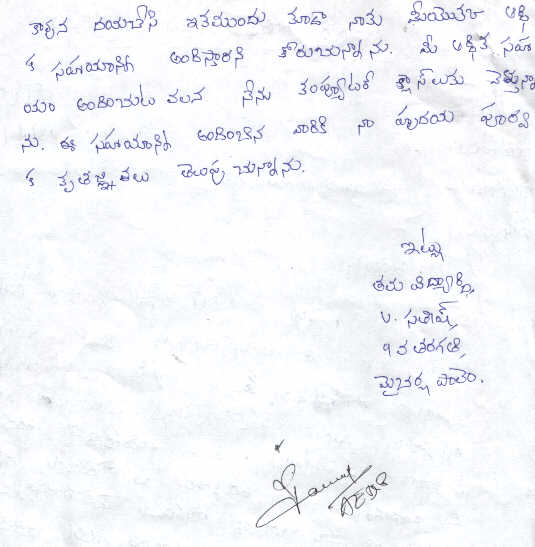 కావున దయచేసి ఇకముందు కూడా నాకు మీయొక్క ఆర్థి
క సహాయాన్ని అందిస్తారని కోరుచున్నాను. మీ ఆర్థిక సహా
యం అందించుట వలన నేను కంప్యూటర్ క్లాస్‌లకు వెళ్తున్నా
ను. ఈ సహాయాన్ని అందించిన వారికి నా హృదయ పూర్వ
క కృతజ్ఞతలు తెలుపు చున్నాను.
ఇట్లు
తమ విద్యార్థి,
U. సతీష్,
9 వ తరగతి,
పాలెం.